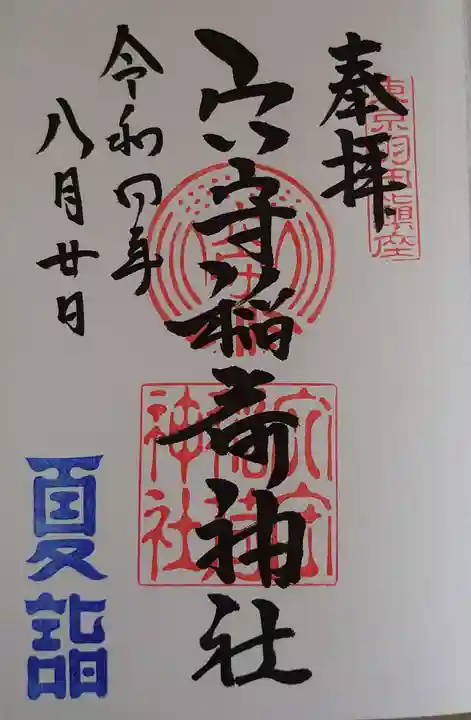 奉拝
東京羽田鎮座
穴守稲荷神社
穴守
稲荷
神社
令和四年
八月廿日
夏詣